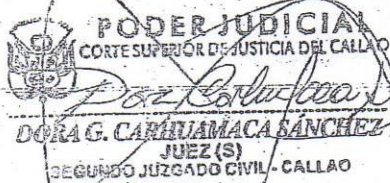 PODER JUDICIAL
CORTE SUPERIOR DE JUSTICIA DEL CALLAO
DORA G. CARHUAMACA SÁNCHEZ
JUEZ (S)
SEGUNDO JUZGADO CIVIL - CALLAO